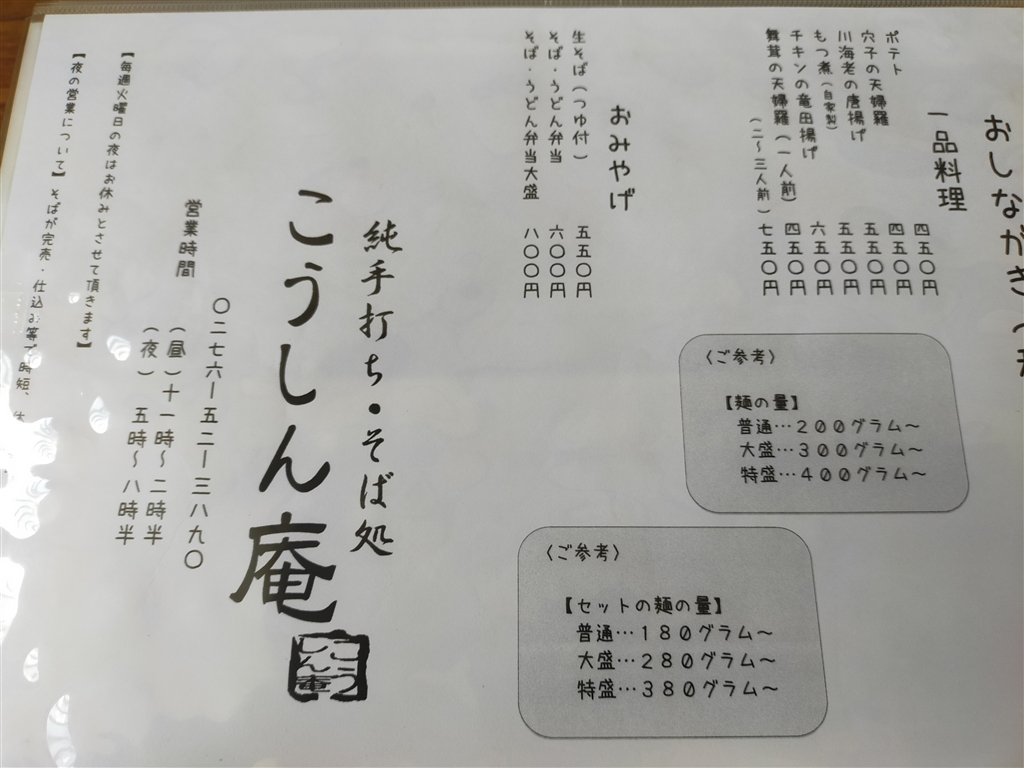 おしながき
一品料理
ポテト 四五〇円
穴子の天婦羅 四五〇円
川海老の唐揚げ 五五〇円
もつ煮(自家製) 五五〇円
チキンの竜田揚げ 六五〇円
舞茸の天婦羅(一人前) 四五〇円
(二〜三人前) 七五〇円
〈ご参考〉
【麺の量】
普通…200グラム〜
大盛…300グラム〜
特盛…400グラム〜
おみやげ
生そば(つゆ付) 五五〇円
そば・うどん弁当 六〇〇円
そば・うどん弁当大盛 八〇〇円
〈ご参考〉
【セットの麺の量】
普通…180グラム〜
大盛…280グラム〜
特盛…380グラム〜
純手打ち・そば処
こうしん庵
こうしん庵
〇二七六ー五二ー三八九〇
営業時間 (昼)十一時〜二時半
(夜) 五時〜八時半
【毎週火曜日の夜はお休みとさせて頂きます】
【夜の営業について】そばが完売・仕込み等で時短、